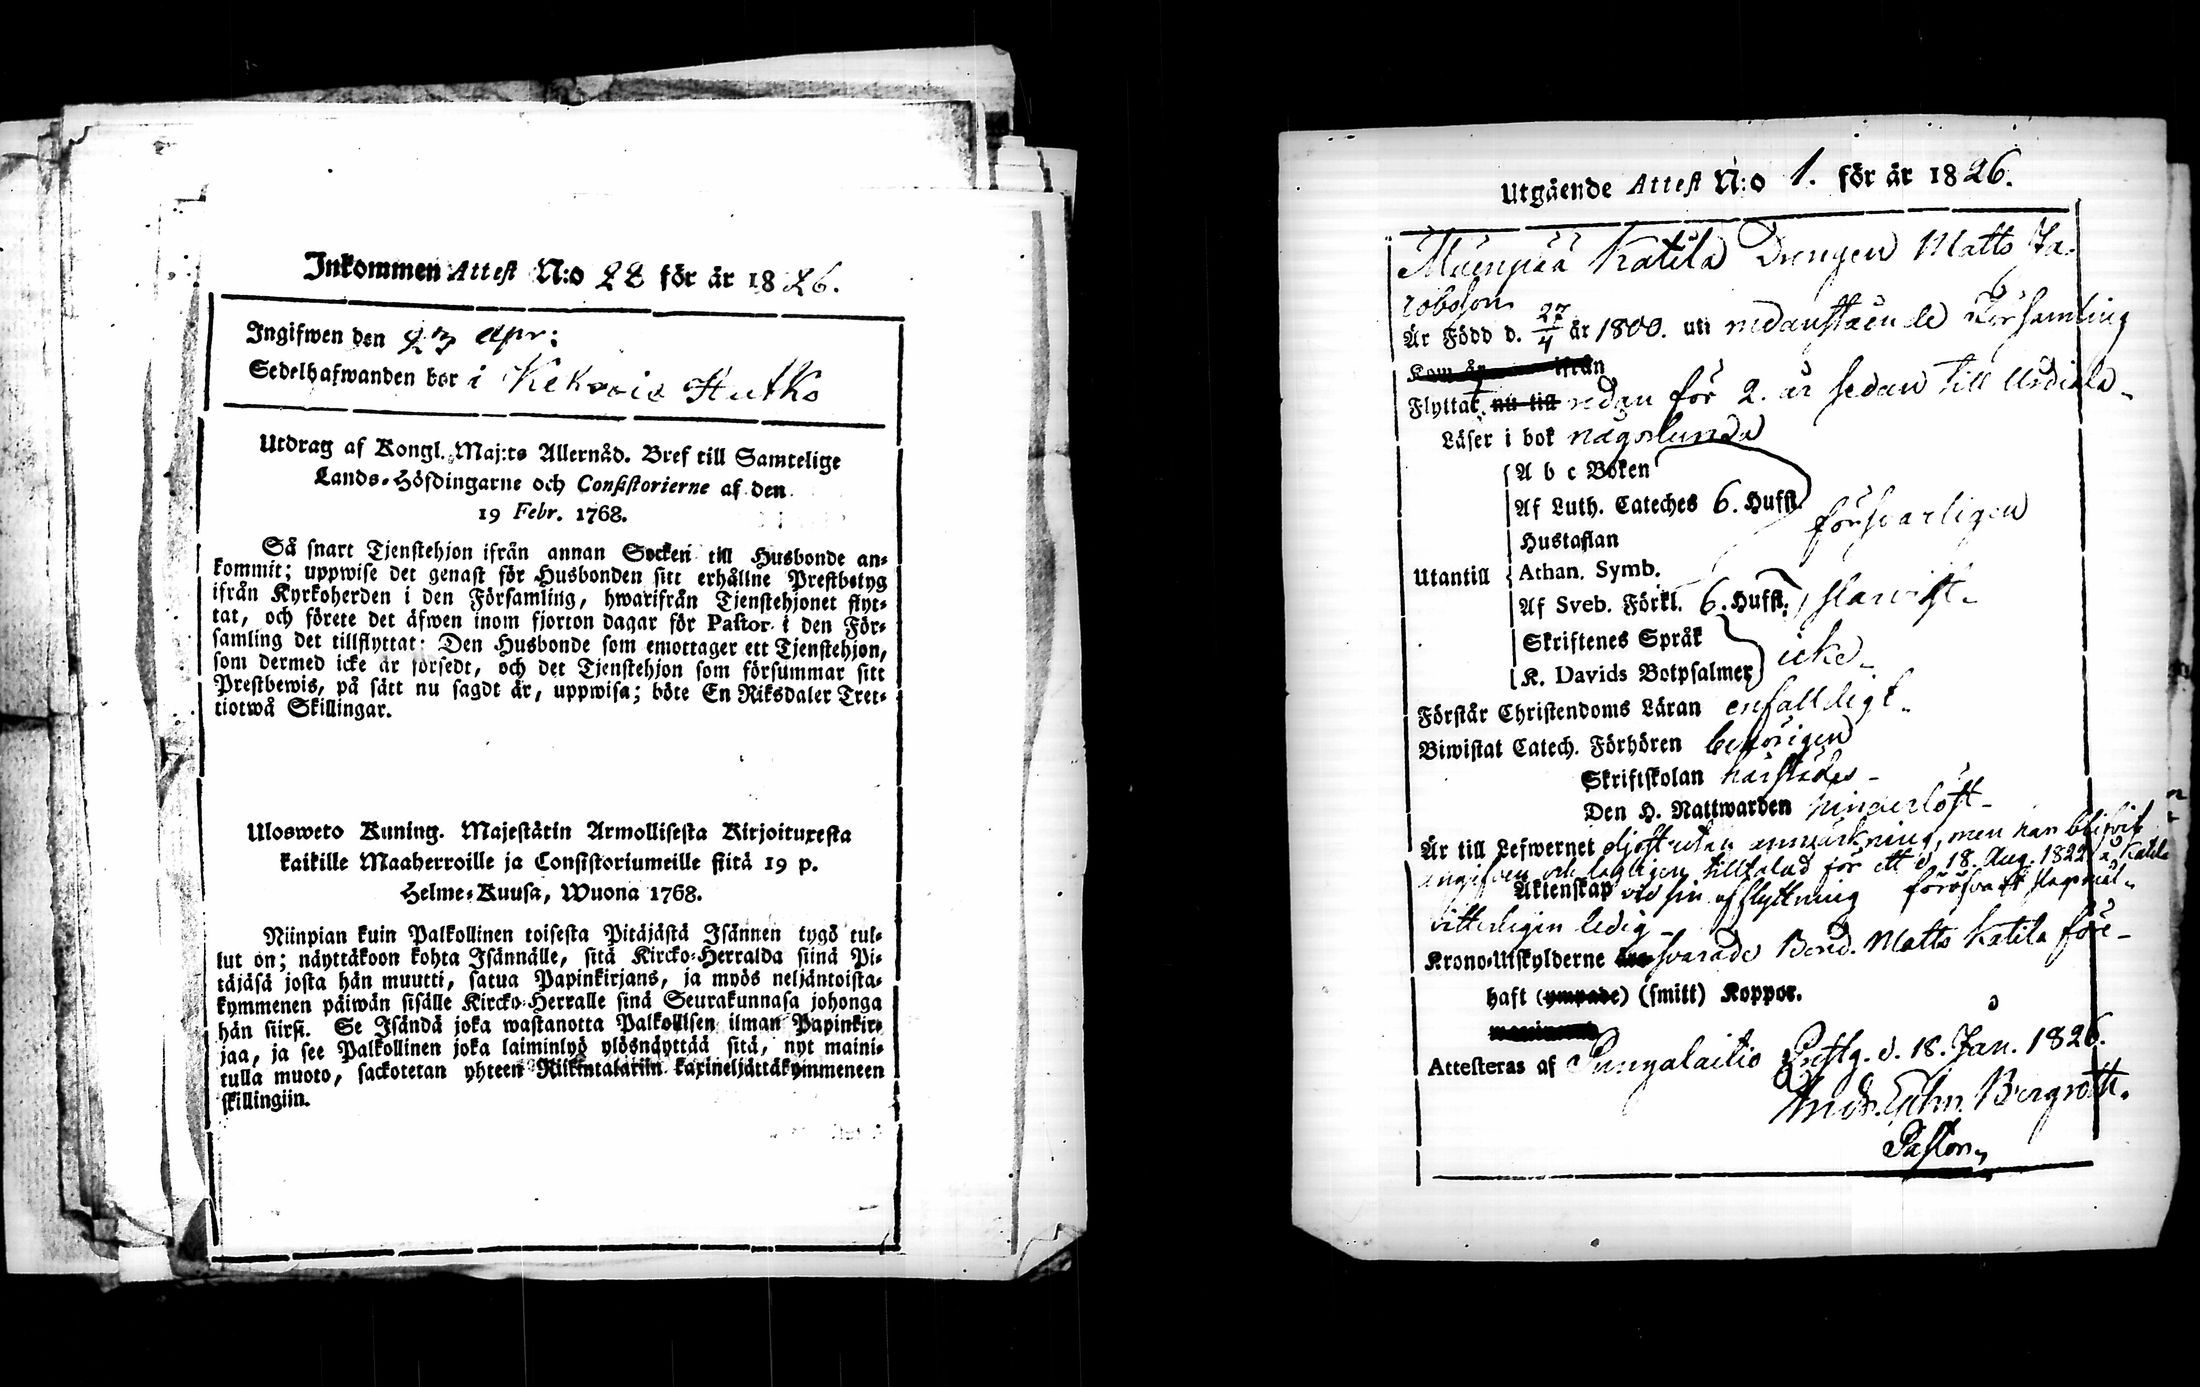 Inkommen Attest N:o 22 för år 1826.
Ingifwen den 23 Apr:
Sedelhafwanden bor i Kekois Hutko
Utdrag af Kongl. Maj:ts Allernåd. Bref till Samtelige
Lands-Höfdingarne och Consistorierne af den
19 Febr. 1768.
Så snart Tjenstehjon ifrån annan Socken till Husbonde an-
kommit; uppwise det genast för Husbonden sitt erhållne Prestbetyg
ifrån Kyrkoherden i den Församling, hwarifrån Tjenstehjonet flyt-
tat, och förete det äfwen inom fjorton dagar för Pastor i den För-
samling det tillflyttat: Den Husbonde som emottager ett Tjenstehjon,
som dermed icke är försedt, och det Tjenstehjon som försummar sitt
Prestbewis, på sätt nu sagdt är, uppwisa; böte En Riksdaler Tret-
tiotwå Skillingar.
Ulosweto Kuning. Majestätin Armollisesta Kirjoituxesta
kaikille Maaherroille ja Consistoriumeille siitä 19 p.
Helme-Kuusa, Wuona 1768.
Niinpian kuin Palkollinen toisesta Pitäjästä Isännen tygö tul-
lut on; näyttäkoon kohta Isännälle, sitä Kircko-Herralda siinä Pi-
täjäsä josta hän muutti, satua Papinkirjans, ja myös neljäntoista-
kymmenen päiwän sisälle Kircko-Herralle sinä Seurakunnasa johonga
hän siirsi. Se Isändä joka wastanotta Palkollisen ilman Papinkir-
jaa, ja see Palkollinen joka laiminlyö ylösnäyttää sitä, nyt maini-
tulla muoto, sackotetan yhteen Riikintalariin kaxineljättäkymmeneen
skillingiin.
Utgående Attest N:o 1. för år 1826.
Mäenpää Katila Drengen Matts Ja-
cobsson
Är Född d. 27/4 år 1800. uti nedanstående Församling
Kom år ifrån
Flyttat nu till redan för 2. år sedan till Urdiala
Läser i bok någorlunda
A b c Boken
Af Luth. Cateches 6. Hufst.
försvarligen
Hustaflan
Utantill Athan. Symb.
Af Sveb. Förkl. 6. Hufst.
Skriftenes Språk
icke
K. Davids Botpsalmer
Förstår Christendoms Läran enfalldigt
Biwistat Catech. Förhören behörigen
Skriftskolan härstädes
Den H. Nattwarden hinderlöst
Är till Lefwernet eljest utan anmärkning, men han blifvit
angifven och lagligen tilltalad för ett d. 18. Aug. 1822 å Katila
föröfvadt slagsmål
Äktenskap vid sin afflyttning
vitterligen ledig
Krono-Utskylderne svarade Bond. Matts Katila före
haft (ympade) (smitt) Koppor.
Attesteras af Pungalaitio Prestg. d. 18. Jan. 1826.
Andr. Ephr. Bergroth.
Pastor